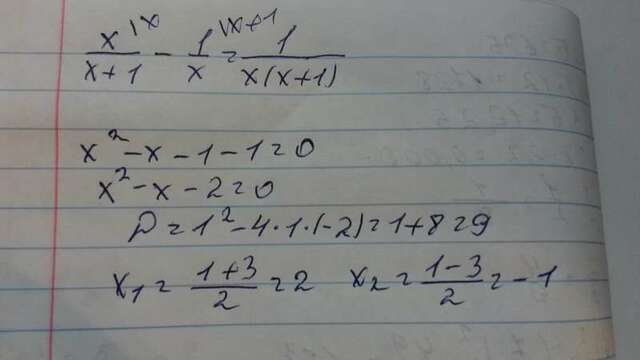 x/(x+1) \x - 1/x \x+1 = 1/(x(x+1))
x² - x - 1 - 1 = 0
x² - x - 2 = 0
D = 1² - 4·1·(-2) = 1 + 8 = 9
x₁ = (1+3)/2 = 2 x₂ = (1-3)/2 = -1